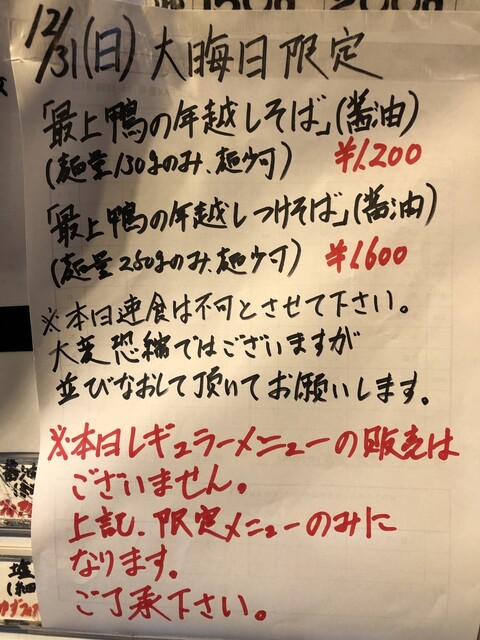 150g 200g
12/31(日)大晦日限定
「最上鴨の年越しそば」(醤油)
(麺量130gのみ、麺少可) ¥1,200
「最上鴨の年越しつけそば」(醤油)
(麺量250gのみ、麺少可) ¥1,600
※本日連食は不可とさせて下さい。
大変恐縮ではございますが
並びなおして頂いてお願いします。
※本日レギュラーメニューの販売は
ございません。
上記、限定メニューのみに
なります。
ご了承下さい。